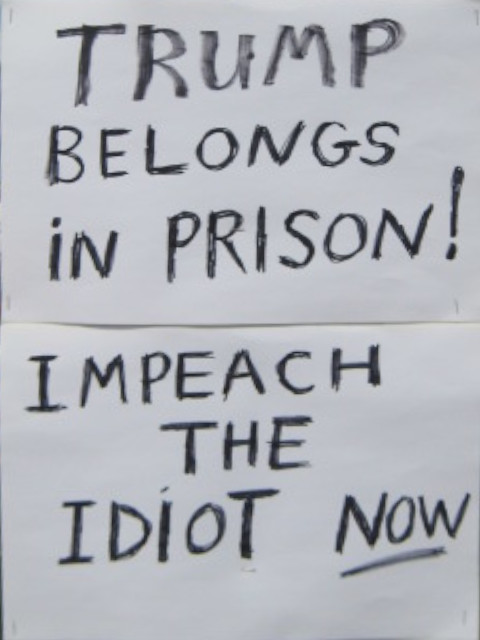 TRUMP
BELONGS
iN PRISON!
IMPEACH
THE
IDiOT NOW